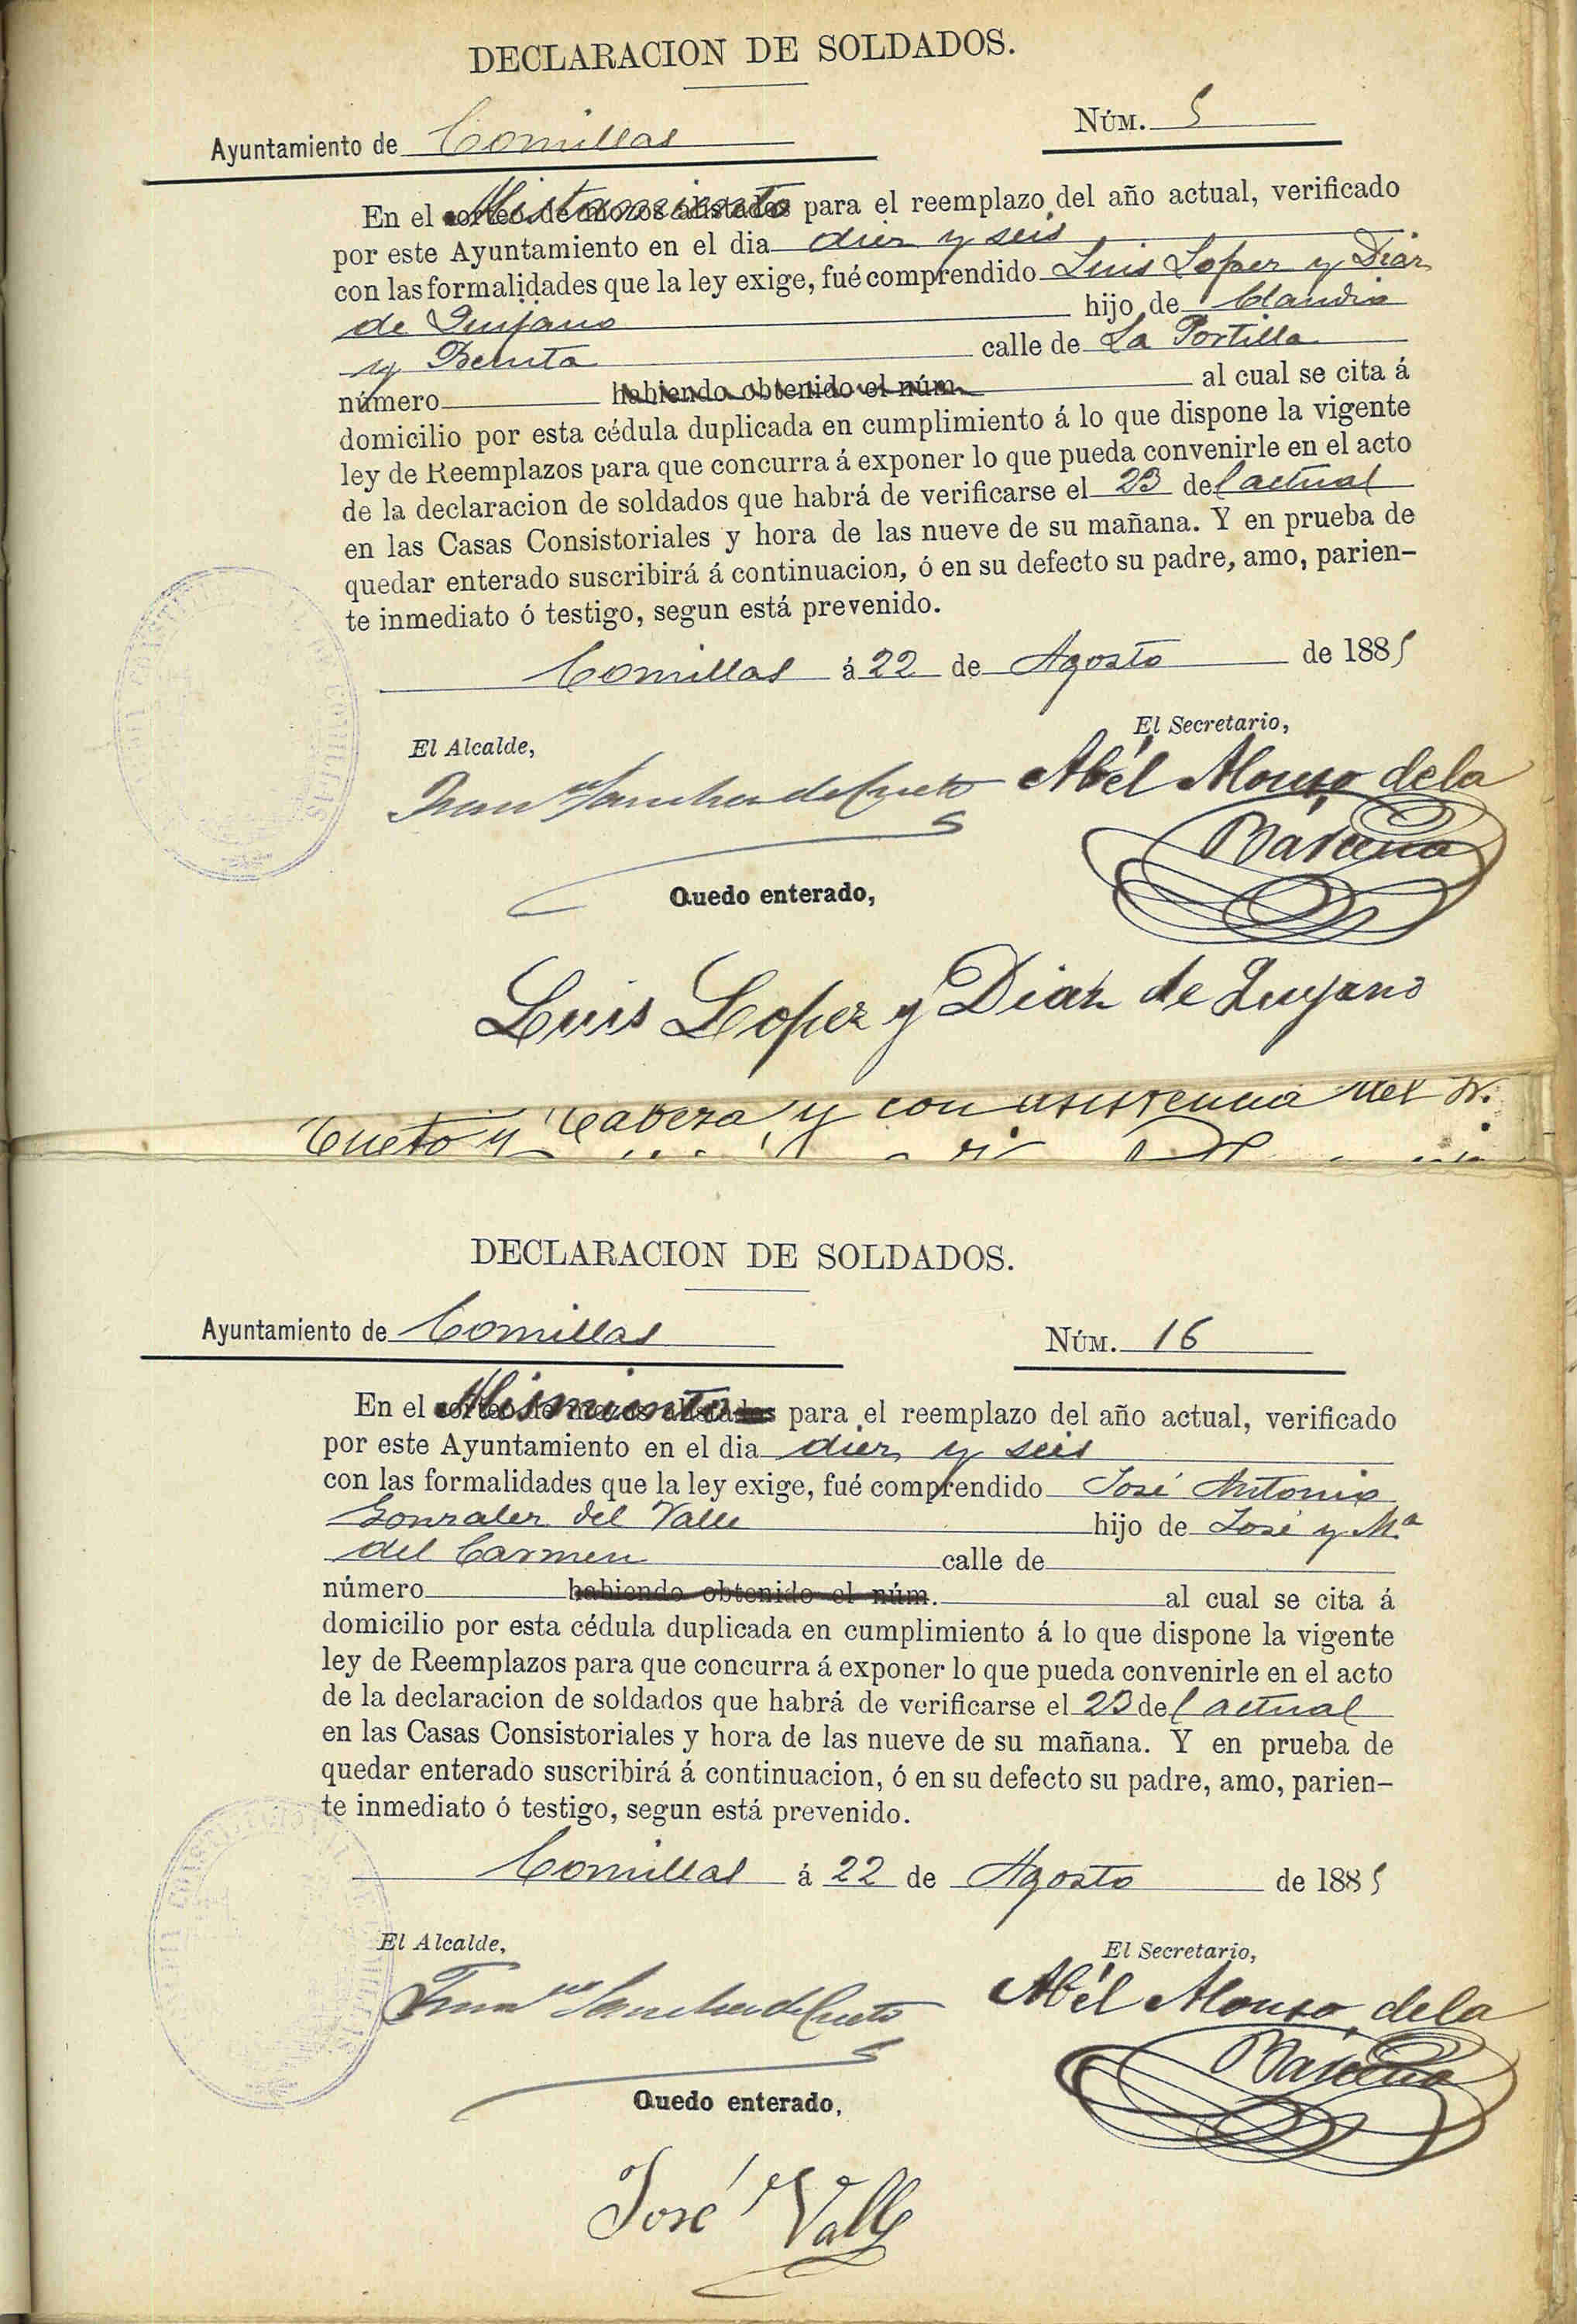 DECLARACION DE SOLDADOS.
Ayuntamiento de Comillas
NÚM. 5
En el sorteo de mozos alistados Alistamiento para el reemplazo del año actual, verificado
por este Ayuntamiento en el dia diez y seis
con las formalidades que la ley exige, fué comprendido Luis Lopez y Diaz
de Quijano hijo de Claudio
y Benita calle de La Portilla
número habiendo obtenido el núm. al cual se cita á
domicilio por esta cédula duplicada en cumplimiento á lo que dispone la vigente
ley de Reemplazos para que concurra á exponer lo que pueda convenirle en el acto
de la declaracion de soldados que habrá de verificarse el 23 del actual
en las Casas Consistoriales y hora de las nueve de su mañana. Y en prueba de
quedar enterado suscribirá á continuacion, ó en su defecto su padre, amo, parien-
te inmediato ó testigo, segun está prevenido.
Comillas á 22 de Agosto de 1885
El Alcalde,
El Secretario,
Franco Sanchez de Cueto
Abél Alonso de la
Bárcena
Quedo enterado,
Luis Lopez y Diaz de Quijano
Cueto y Cabeza, y con asistencia del Sr.
DECLARACION DE SOLDADOS.
Ayuntamiento de Comillas
NÚM. 16
En el sorteo de mozos alistados para el reemplazo del año actual, verificado
por este Ayuntamiento en el dia diez y seis
con las formalidades que la ley exige, fué comprendido José Antonio
Gonzalez del Valle hijo de José y Mª
del Carmen calle de
número habiendo obtenido el núm. al cual se cita á
domicilio por esta cédula duplicada en cumplimiento á lo que dispone la vigente
ley de Reemplazos para que concurra á exponer lo que pueda convenirle en el acto
de la declaracion de soldados que habrá de verificarse el 23 del actual
en las Casas Consistoriales y hora de las nueve de su mañana. Y en prueba de
quedar enterado suscribirá á continuacion, ó en su defecto su padre, amo, parien-
te inmediato ó testigo, segun está prevenido.
Comillas á 22 de Agosto de 1885
El Alcalde,
El Secretario,
Franco Sanchez de Cueto
Abél Alonso de la
Bárcena
Quedo enterado,
José Valle